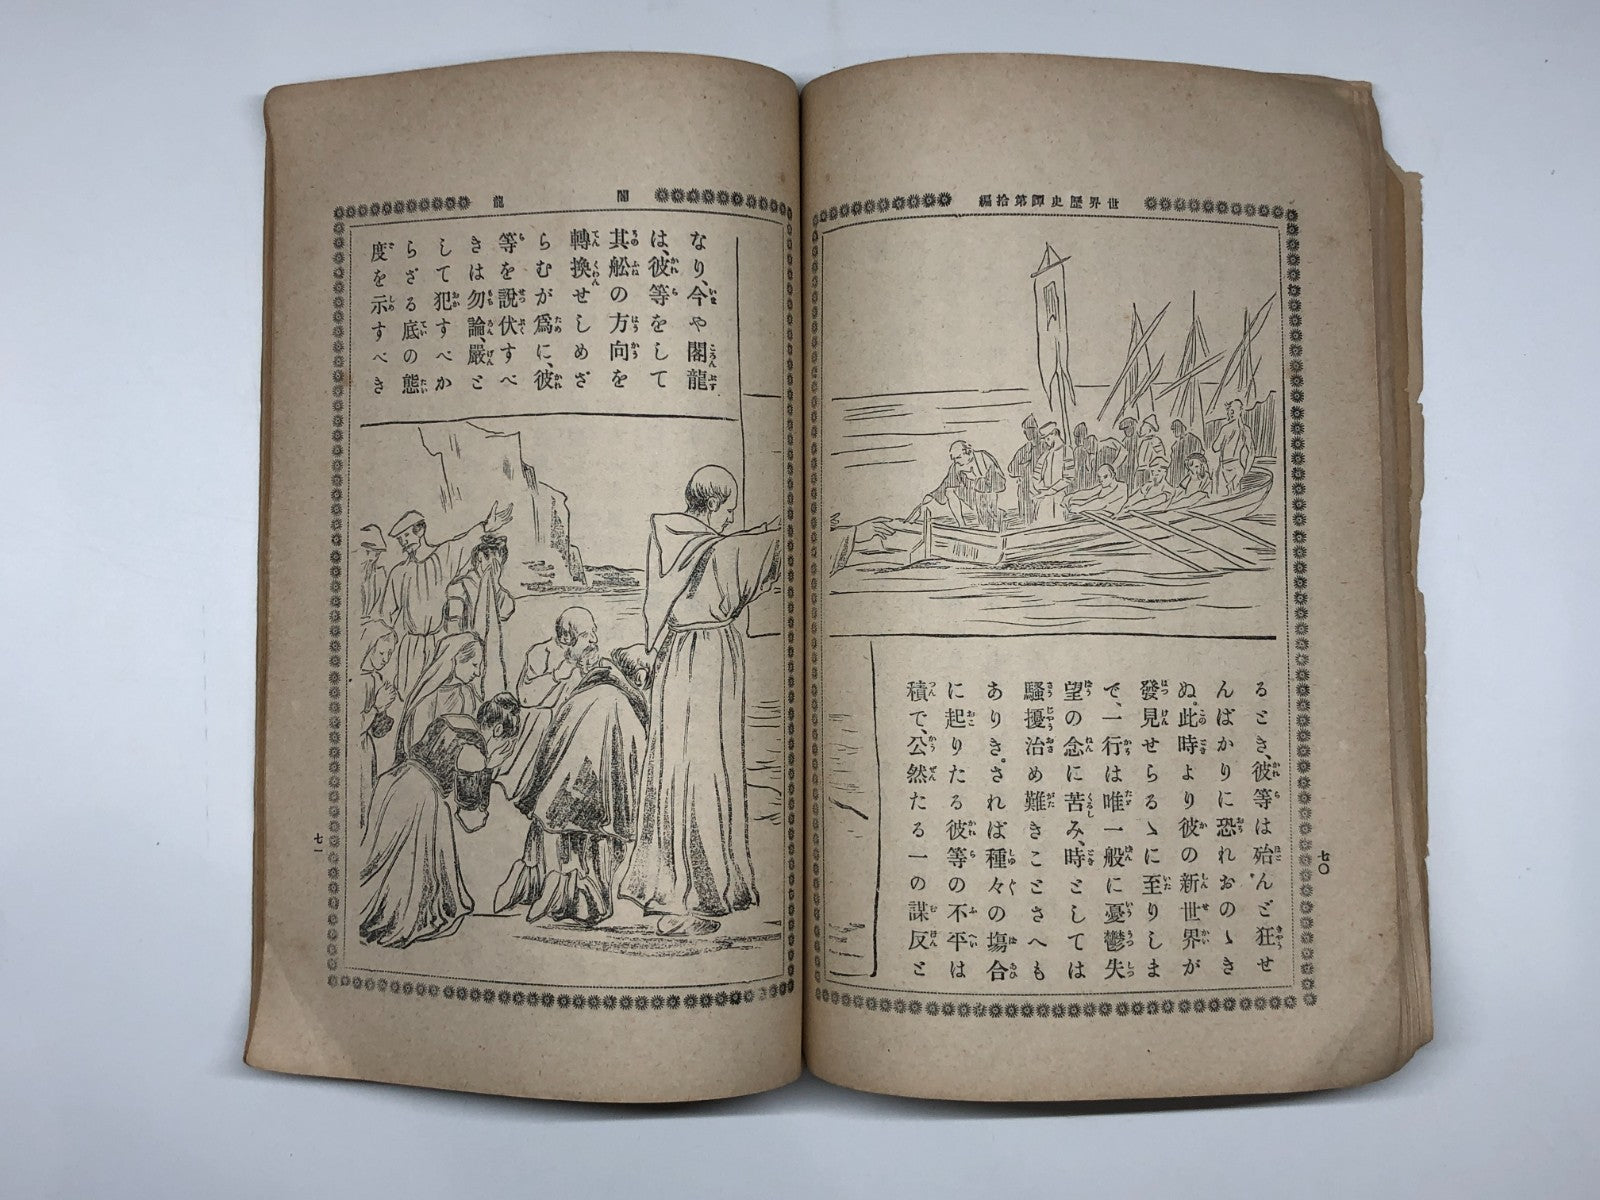 世界歷史譚第拾編
るとき、彼等は殆んど狂せ
んばかりに恐れおのゝき
ぬ。此時より彼の新世界が
發見せらるゝに至りしま
で、一行は唯一般に憂鬱失
望の念に苦み、時としては
騷擾治め難きことさへも
ありき。されば種々の塲合
に起りたる彼等の不平は
積で、公然たる一の謀反と
七〇
閣龍
なり、今や閣龍
は、彼等をして
其舩の方向を
轉換せしめざ
らむが爲に、彼
等を說伏すべ
きは勿論、嚴と
して犯すべか
らざる底の態
度を示すべき
七一